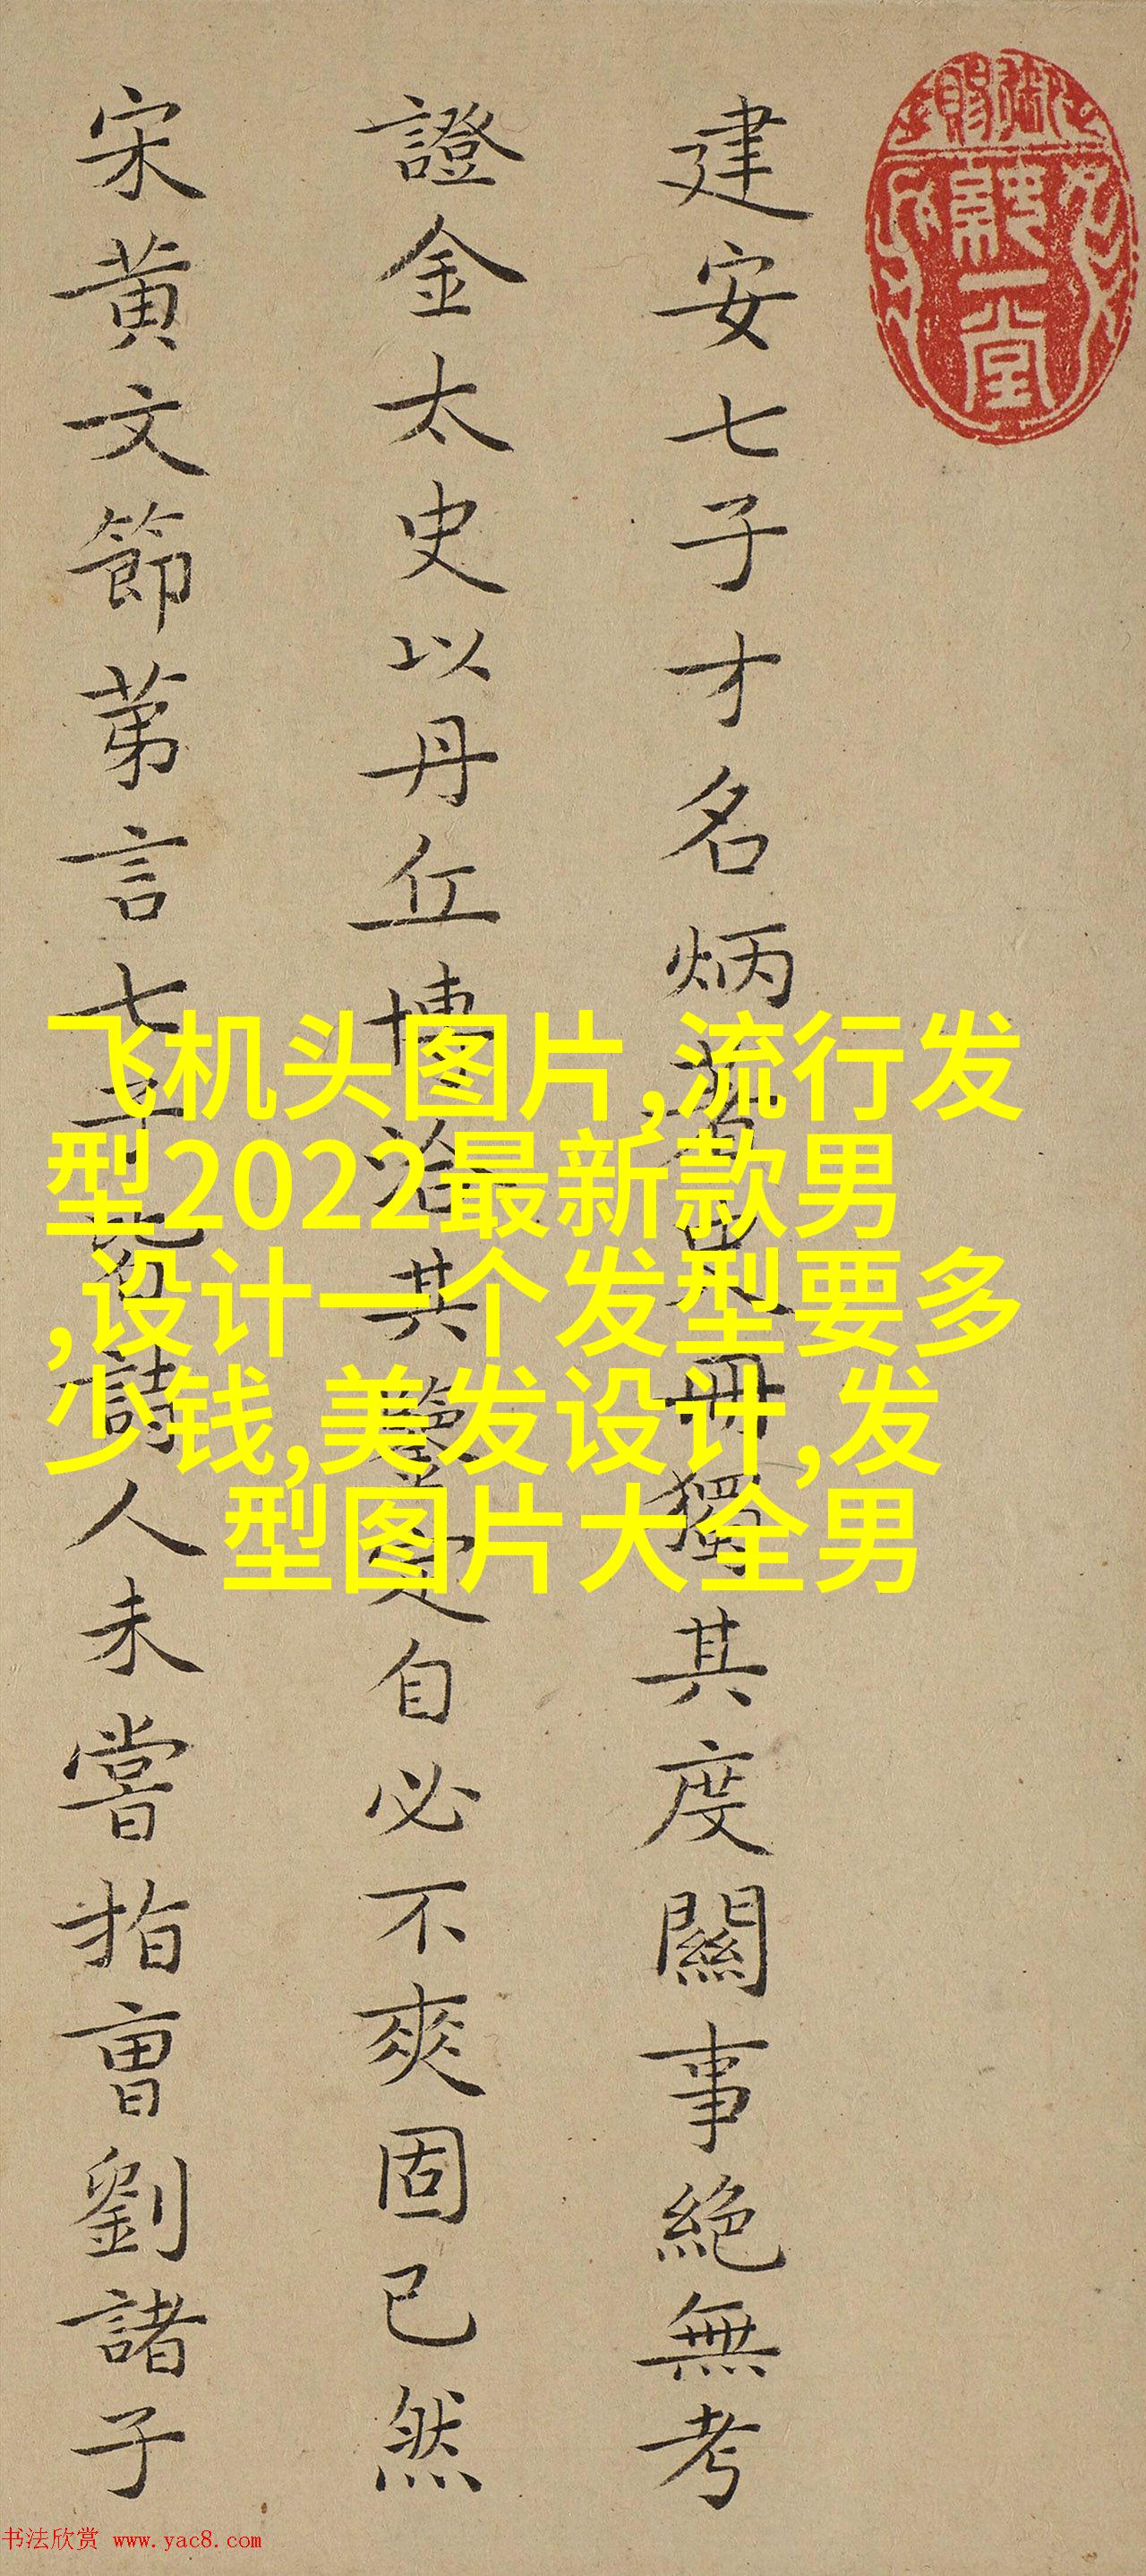 建安七子才名炳著史冊獨其度關事絕無考
證金太史以丹丘博洽其鑒定自必不爽固已然
宋黃文節苐言七子皆詩人未嘗指曹劉諸子
飞机头图片,流行发
型2022最新款男
,设计一个发型要多
少钱,美发设计,发
型图片大全男
书法欣赏 www.yac8.com